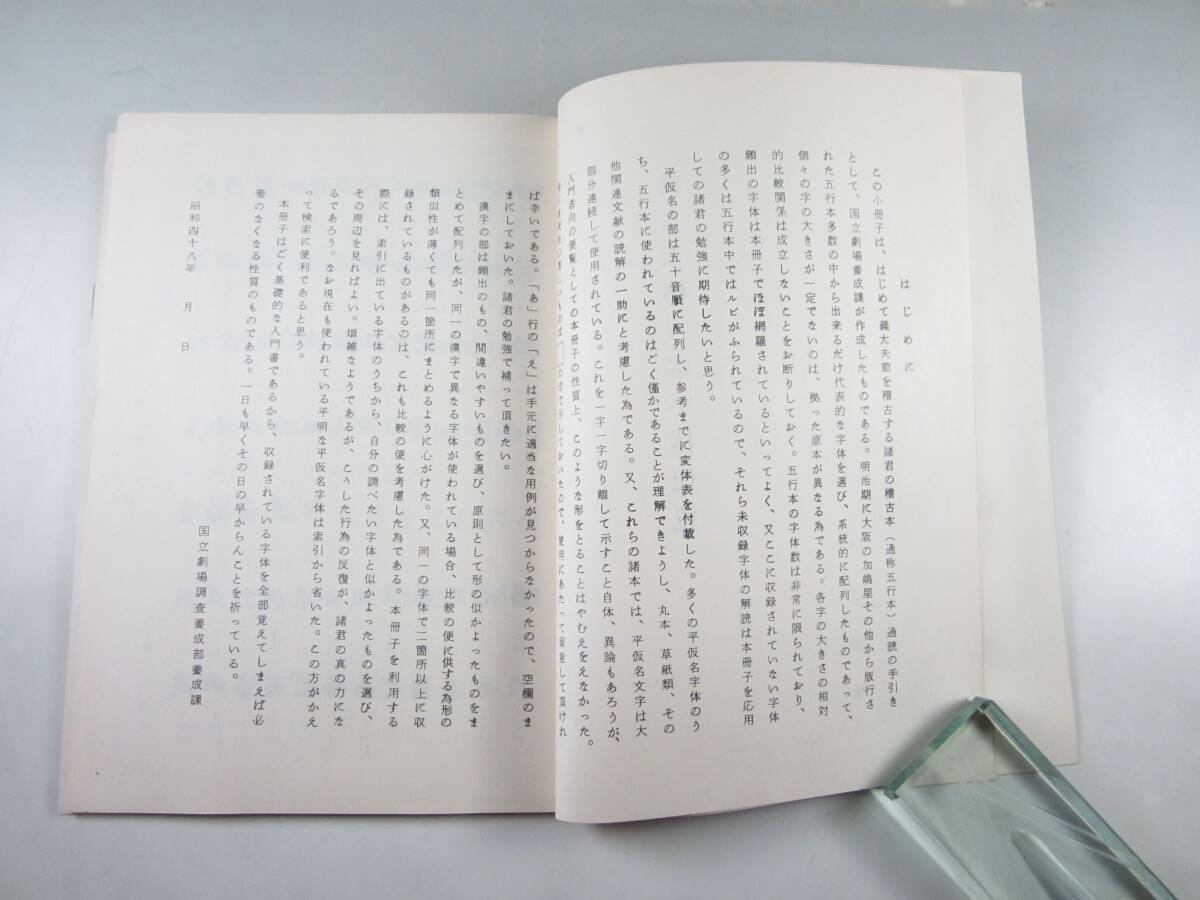 はじめに
この小冊子は、はじめて義太夫節を稽古する諸君の稽古本(通称五行本)通読の手引き
として、国立劇場養成課が作成したものである。明治期に大阪の加嶋屋その他から版行さ
れた五行本多数の中から出来るだけ代表的な字体を選び、系統的に配列したものであって、
個々の字の大きさが一定でないのは、拠った原本が異なる為である。各字の大きさの相対
的比較関係は成立しないことをお断りしておく。五行本の字体数は非常に限られており、
頻出の字体は本冊子でほぼ網羅されているといってよく、又ここに収録されていない字体
の多くは五行本中ではルビがふられているので、それら未収録字体の解読は本冊子を応用
しての諸君の勉強に期待したいと思う。
平仮名の部は五十音順に配列し、参考までに変体表を付載した。多くの平仮名字体のう
ち、五行本に使われているのはごく僅かであることが理解できようし、丸本、草紙類、その
他関連文献の読解の一助にと考慮した為である。又、これらの諸本では、平仮名文字は大
部分連続して使用されている。これを一字一字切り離して示すこと自体、異論もあろうが、
入門者向の便覧としての本冊子の性質上、このような形をとることはやむえをえなかった。
の印で示しておいたので、使用にあたって留意して頂けれ
ば幸いである。「あ」行の「え」は手元に適当な用例が見つからなかったので、空欄のま
まにしておいた。諸君の勉強で補って頂きたい。
漢字の部は頻出のもの、間違いやすいものを選び、原則として形の似かよったものをま
とめて配列したが、同一の漢字で異なる字体が使われている場合、比較の便に供する為形の
類似性が薄くても同一箇所にまとめるように心がけた。又、同一の字体で二箇所以上に収
録されているものがあるのは、これも比較の便を考慮した為である。本冊子を利用する
際には、索引に出ている字体のうちから、自分の調べたい字体と似かよったものを選び、
その周辺を見ればよい。煩雑なようであるが、こうした行為の反復が、諸君の真の力にな
るであろう。なお現在も使われている平明な平仮名字体は索引から省いた。この方がかえ
って検索に便利であると思う。
本冊子はごく基礎的な入門書であるから、収録されている字体を全部覚えてしまえば必
要のなくなる性質のものである。一日も早くその日の早からんことを祈っている。
昭和四十八年 月 日
国立劇場調査養成部養成課